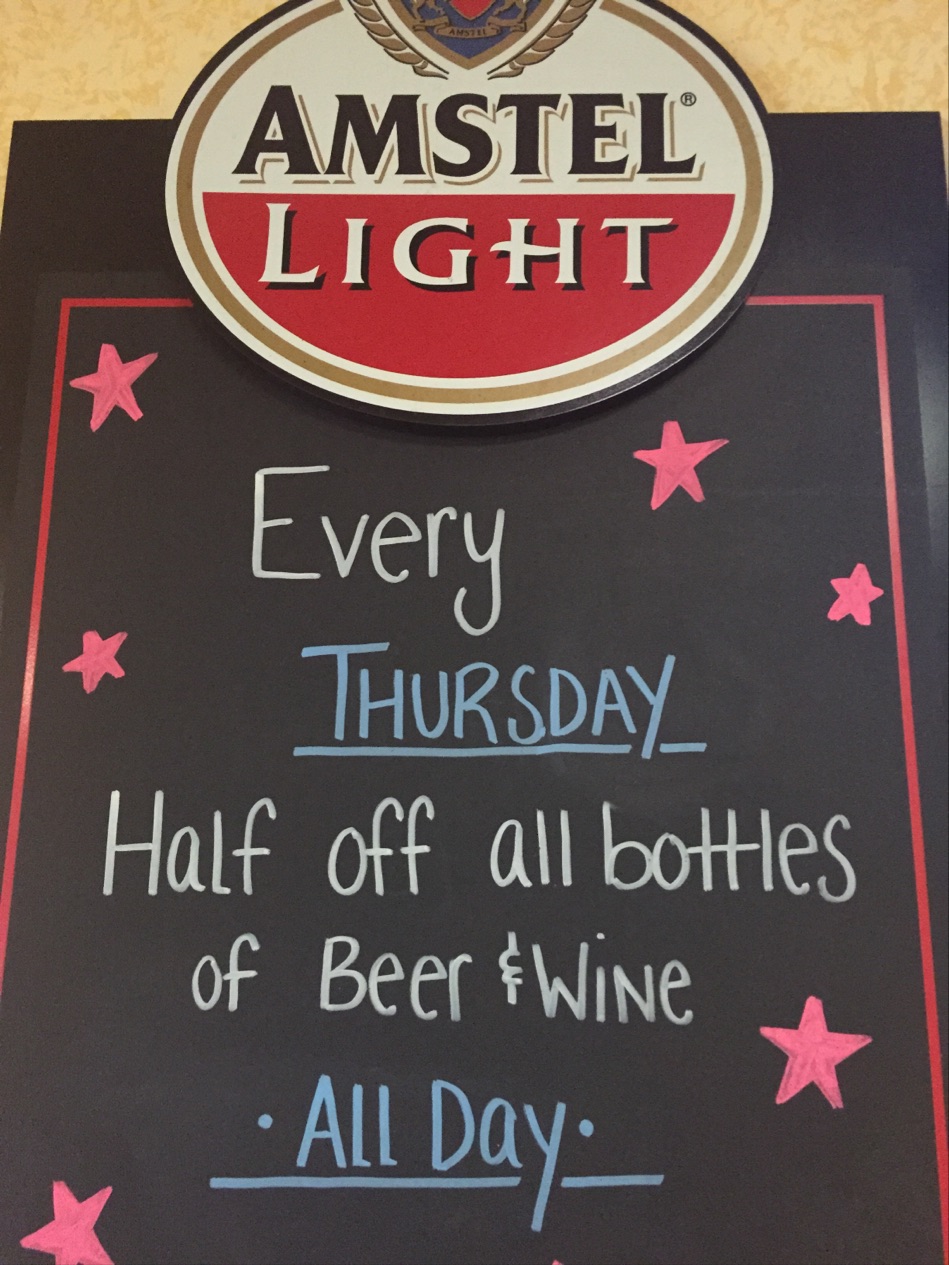 AMSTEL
AMSTEL®
LIGHT
Every
THURSDAY
Half off all bottles
of Beer & Wine
• All Day •